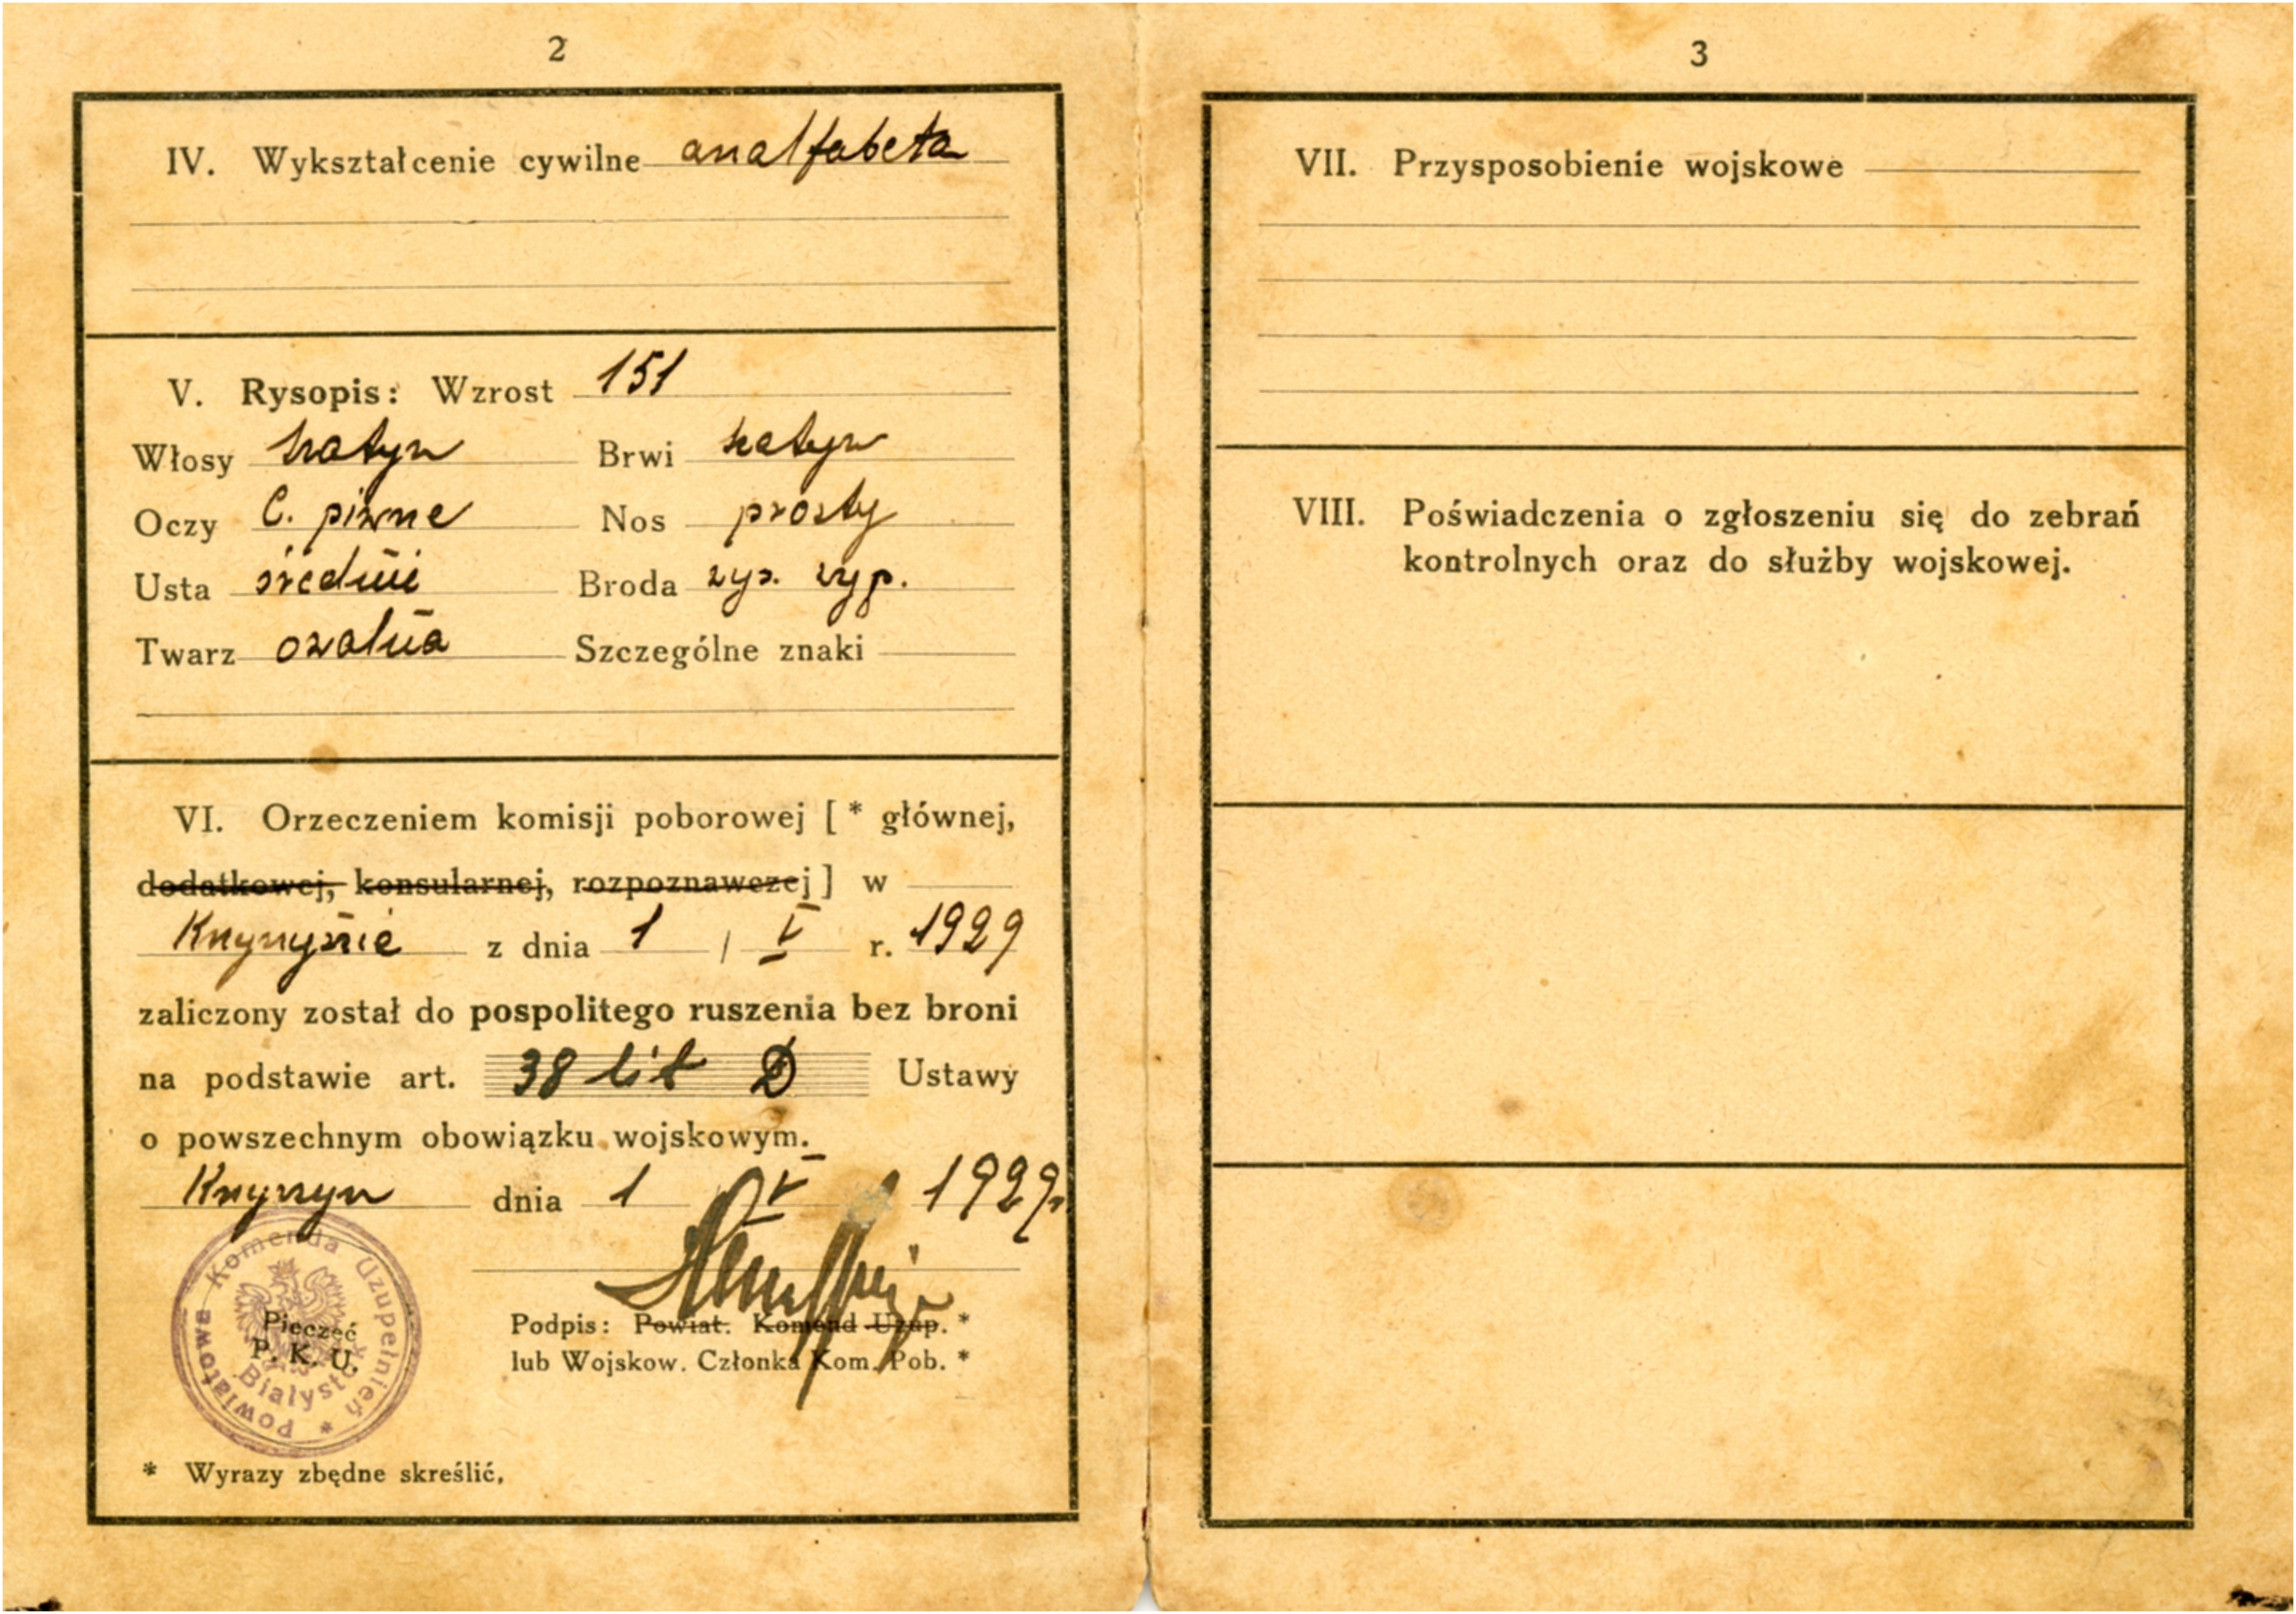 2
IV. Wykształcenie cywilne analfabeta
V. Rysopis: Wzrost 151
Włosy szatyn Brwi szatyn
Oczy C. piwne Nos prosty
Usta średnie Broda
Twarz owalna Szczególne znaki
VI. Orzeczeniem komisji poborowej [ * głównej,
dodatkowej, konsularnej, rozpoznawczej ] w
Knyszynie z dnia 1 / V r. 1929
zaliczony został do pospolitego ruszenia bez broni
na podstawie art. 38 lit D Ustawy
o powszechnym obowiązku wojskowym.
Knyszyn dnia 1 V 1929 r.
Powiatowa Komenda Uzupełnień *
Białystok
Pieczęć
P. K. U.
Podpis: Powiat. Komend Uzup. *
lub Wojskow. Członka Kom. Pob. *
* Wyrazy zbędne skreślić,
3
VII. Przysposobienie wojskowe
VIII. Poświadczenia o zgłoszeniu się do zebrań
kontrolnych oraz do służby wojskowej.